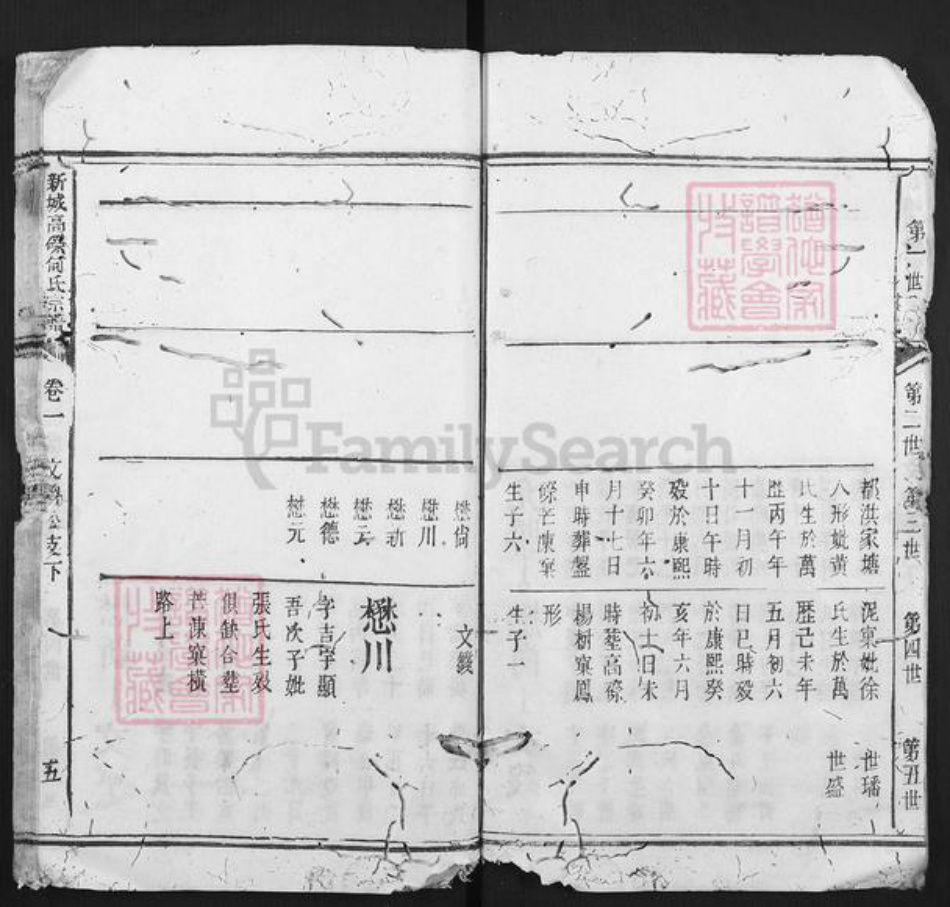 第一世
第二世
第三世
第四世
第五世
都洪家塘
八形妣黃
氏生於萬
歷丙午年
十一月初
十日午時
歿於康熙
癸卯年六
月十七日
申時葬盤
嶺芒涷窠
生子六
泥窠妣徐
氏生於萬
歷己未年
五月初六
日巳時歿
於康熙癸
亥年六月
初十日未
時葬高磜
楊樹窠鳳
形
生子一
世璠
世盛
懋尙
懋川
懋新
懋云
懋德
懋元
文簆
懋川
字吉孚顯
吾次子妣
張氏生歿
俱缺合塟
芒涷窠橫
路上
新城高磜何氏宗譜
卷一
公支下
五
FamilySearch
譜學會
收藏